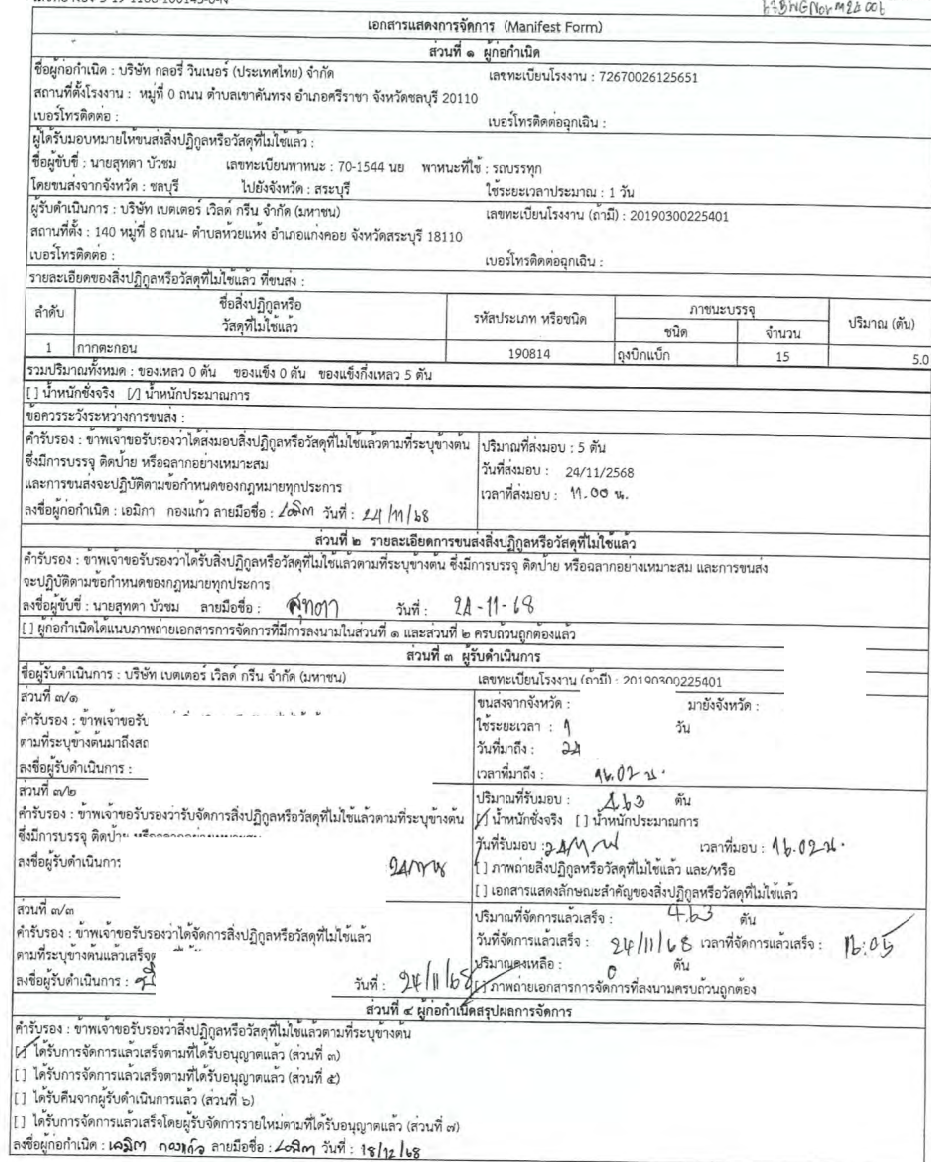 เอกสารแสดงการจัดการ (Manifest Form)
ส่วนที่ ๑ ผู้ก่อกำเนิด
ชื่อผู้ก่อกำเนิด : บริษัท กลอรี่ วินเนอร์ (ประเทศไทย) จำกัด เลขทะเบียนโรงงาน : 72670026125651
สถานที่ตั้งโรงงาน : หมู่ที่ 0 ถนน ตำบลเขาคันทรง อำเภอศรีราชา จังหวัดชลบุรี 20110
เบอร์โทรติดต่อ : เบอร์โทรติดต่อฉุกเฉิน :
ผู้ได้รับมอบหมายให้ขนส่งสิ่งปฏิกูลหรือวัสดุที่ไม่ใช้แล้ว :
ชื่อผู้ขับขี่ : นายสุทตา บัวชม เลขทะเบียนพาหนะ : 70-1544 นย พาหนะที่ใช้ : รถบรรทุก
โดยขนส่งจากจังหวัด : ชลบุรี ไปยังจังหวัด : สระบุรี ใช้ระยะเวลาประมาณ : 1 วัน
ผู้รับดำเนินการ : บริษัท เบตเตอร์ เวิลด์ กรีน จำกัด (มหาชน) เลขทะเบียนโรงงาน (ถ้ามี) : 20190300225401
สถานที่ตั้ง : 140 หมู่ที่ 8 ถนน- ตำบลห้วยแห้ง อำเภอแก่งคอย จังหวัดสระบุรี 18110
เบอร์โทรติดต่อ : เบอร์โทรติดต่อฉุกเฉิน :
รายละเอียดของสิ่งปฏิกูลหรือวัสดุที่ไม่ใช้แล้ว ที่ขนส่ง :
ลำดับ ชื่อสิ่งปฏิกูลหรือ วัสดุที่ไม่ใช้แล้ว รหัสประเภท หรือชนิด ภาชนะบรรจุ ปริมาณ (ตัน)
ชนิด จำนวน
1 กากตะกอน 190814 ถุงบิกแบ็ก 15 5.0
รวมปริมาณทั้งหมด : ของเหลว 0 ตัน ของแข็ง 0 ตัน ของแข็งกึ่งเหลว 5 ตัน
[ ] น้ำหนักชั่งจริง [/] น้ำหนักประมาณการ
ข้อควรระวังระหว่างการขนส่ง :
คำรับรอง : ข้าพเจ้าขอรับรองว่าได้ส่งมอบสิ่งปฏิกูลหรือวัสดุที่ไม่ใช้แล้วตามที่ระบุข้างต้น ปริมาณที่ส่งมอบ : 5 ตัน
ซึ่งมีการบรรจุ ติดป้าย หรือฉลากอย่างเหมาะสม วันที่ส่งมอบ : 24/11/2568
และการขนส่งจะปฏิบัติตามข้อกำหนดของกฎหมายทุกประการ เวลาที่ส่งมอบ : 11.00 น.
ลงชื่อผู้ก่อกำเนิด : เอมิกา กองแก้ว ลายมือชื่อ : วันที่ : 24/11/68
ส่วนที่ ๒ รายละเอียดการขนส่งสิ่งปฏิกูลหรือวัสดุที่ไม่ใช้แล้ว
คำรับรอง : ข้าพเจ้าขอรับรองว่าได้รับสิ่งปฏิกูลหรือวัสดุที่ไม่ใช้แล้วตามที่ระบุข้างต้น ซึ่งมีการบรรจุ ติดป้าย หรือฉลากอย่างเหมาะสม และการขนส่ง
จะปฏิบัติตามข้อกำหนดของกฎหมายทุกประการ
ลงชื่อผู้ขับขี่ : นายสุทตา บัวชม ลายมือชื่อ : สุทตา วันที่ : 24-11-68
[ ] ผู้ก่อกำเนิดได้แนบภาพถ่ายเอกสารการจัดการที่มีการลงนามในส่วนที่ ๑ และส่วนที่ ๒ ครบถ้วนถูกต้องแล้ว
ส่วนที่ ๓ ผู้รับดำเนินการ
ชื่อผู้รับดำเนินการ : บริษัท เบตเตอร์ เวิลด์ กรีน จำกัด (มหาชน) เลขทะเบียนโรงงาน (ถ้ามี) : 20190300225401
ส่วนที่ ๓/๑ ขนส่งจากจังหวัด : มายังจังหวัด :
คำรับรอง : ข้าพเจ้าขอรับ ใช้ระยะเวลา : 1 วัน
ตามที่ระบุข้างต้นมาถึงสถ วันที่มาถึง : 24
ลงชื่อผู้รับดำเนินการ : เวลาที่มาถึง : 16.02 น.
ส่วนที่ ๓/๒ ปริมาณที่รับมอบ : 4.63 ตัน
คำรับรอง : ข้าพเจ้าขอรับรองว่ารับจัดการสิ่งปฏิกูลหรือวัสดุที่ไม่ใช้แล้วตามที่ระบุข้างต้น [/] น้ำหนักชั่งจริง [ ] น้ำหนักประมาณการ
ซึ่งมีการบรรจุ ติดป้าย วันที่รับมอบ : เวลาที่มอบ : 16.02 น.
ลงชื่อผู้รับดำเนินการ [ ] ภาพถ่ายสิ่งปฏิกูลหรือวัสดุที่ไม่ใช้แล้ว และ/หรือ
[ ] เอกสารแสดงลักษณะสำคัญของสิ่งปฏิกูลหรือวัสดุที่ไม่ใช้แล้ว
ส่วนที่ ๓/๓ ปริมาณที่จัดการแล้วเสร็จ : 4.63 ตัน
คำรับรอง : ข้าพเจ้าขอรับรองว่าได้จัดการสิ่งปฏิกูลหรือวัสดุที่ไม่ใช้แล้ว วันที่จัดการแล้วเสร็จ : 24/11/68 เวลาที่จัดการแล้วเสร็จ : 16:05
ตามที่ระบุข้างต้นแล้วเสร็จ ปริมาณคงเหลือ : 0 ตัน
ลงชื่อผู้รับดำเนินการ : วันที่ : 24/11/68 [/] ภาพถ่ายเอกสารการจัดการที่ลงนามครบถ้วนถูกต้อง
ส่วนที่ ๔ ผู้ก่อกำเนิดสรุปผลการจัดการ
คำรับรอง : ข้าพเจ้าขอรับรองว่าสิ่งปฏิกูลหรือวัสดุที่ไม่ใช้แล้วตามที่ระบุข้างต้น
[/] ได้รับการจัดการแล้วเสร็จตามที่ได้รับอนุญาตแล้ว (ส่วนที่ ๓)
[ ] ได้รับการจัดการแล้วเสร็จตามที่ได้รับอนุญาตแล้ว (ส่วนที่ ๕)
[ ] ได้รับคืนจากผู้รับดำเนินการแล้ว (ส่วนที่ ๖)
[ ] ได้รับการจัดการแล้วเสร็จโดยผู้รับจัดการรายใหม่ตามที่ได้รับอนุญาตแล้ว (ส่วนที่ ๗)
ลงชื่อผู้ก่อกำเนิด : เอมิกา กองแก้ว ลายมือชื่อ : วันที่ : 18/12/68